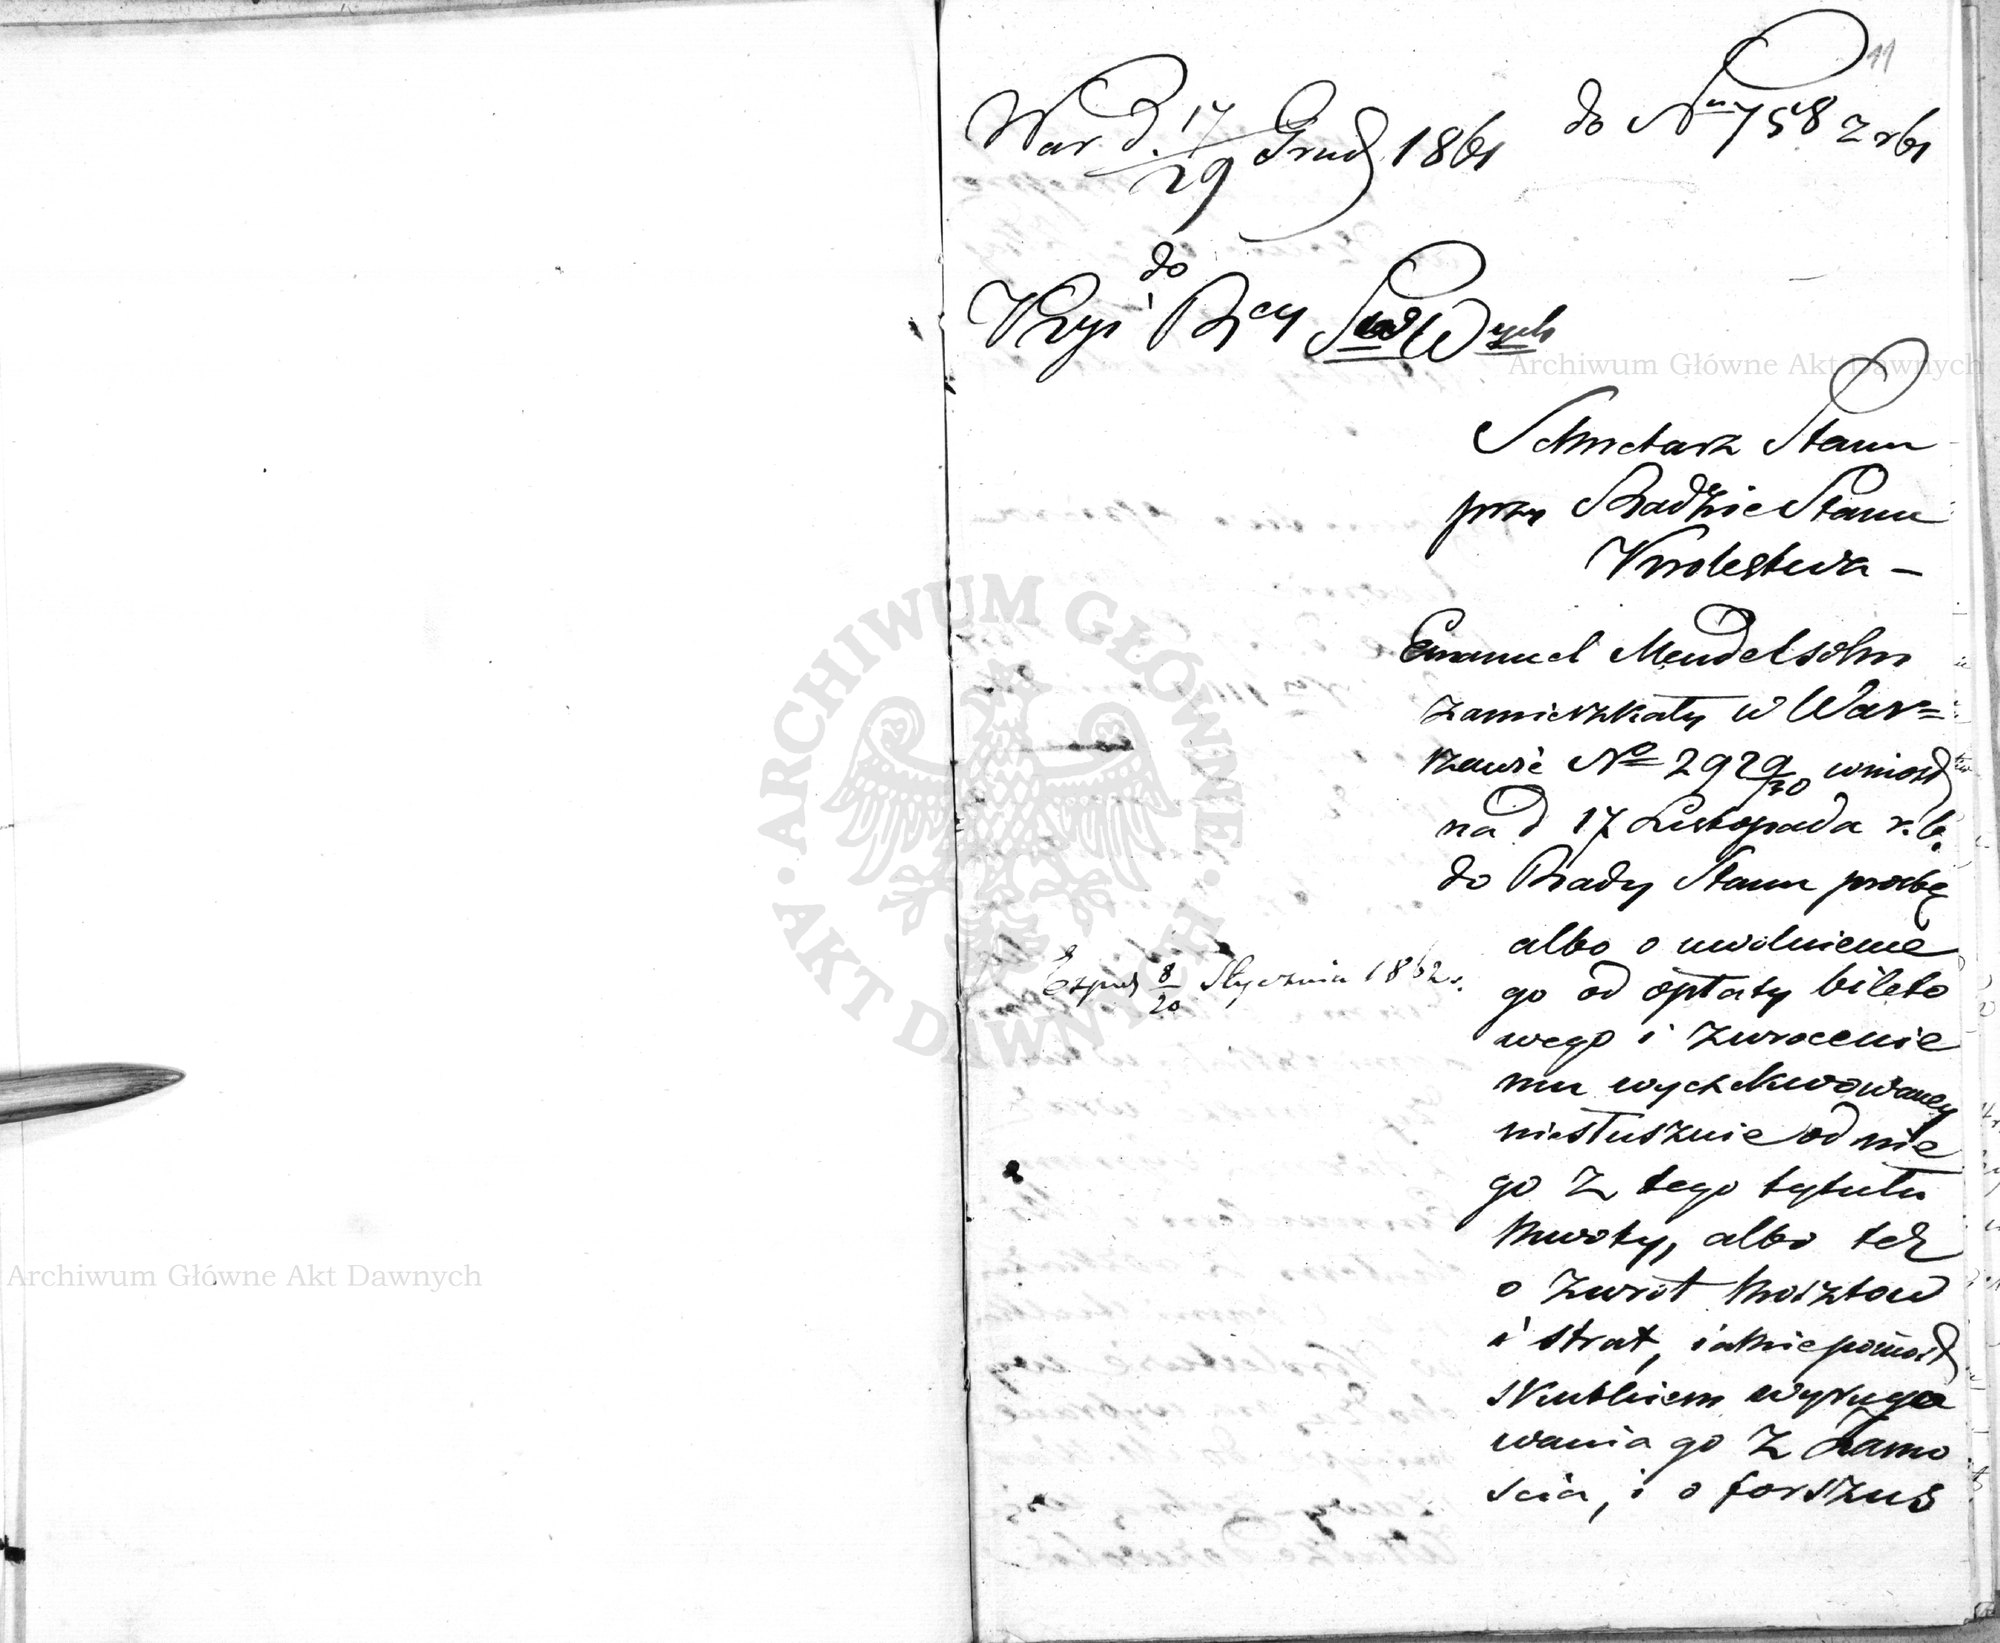 11
War d. 17/29 Grud 1861 do Nru 758 z r 61
do
Kzyi Rcy Sp W Wnych
Archiwum Główne Akt Dawnych
Sekretarz Stanu
przy Radzie Stanu
Krolestwa –
Emanuel Mendelsohn
zamieszkały w War=
szawie No 2929/30 wniosł
na d 17 Listopada r. b.
do Rady Stanu prosbę
albo o uwolnienie
go od opłaty bileto
wego i zwrocenie
mu wyexekwowaney
niesłusznie od nie
go z tego tytułu
kwoty, albo też
o zwrot kosztow
i strat, iakie poniosł
skutkiem wyrugo
wania go z Zamo
scia, i o forszus
Exped 8/20 Stycznia 1862 r.
ARCHIWUM GŁÓWNE AKT DAWNYCH
Archiwum Główne Akt Dawnych